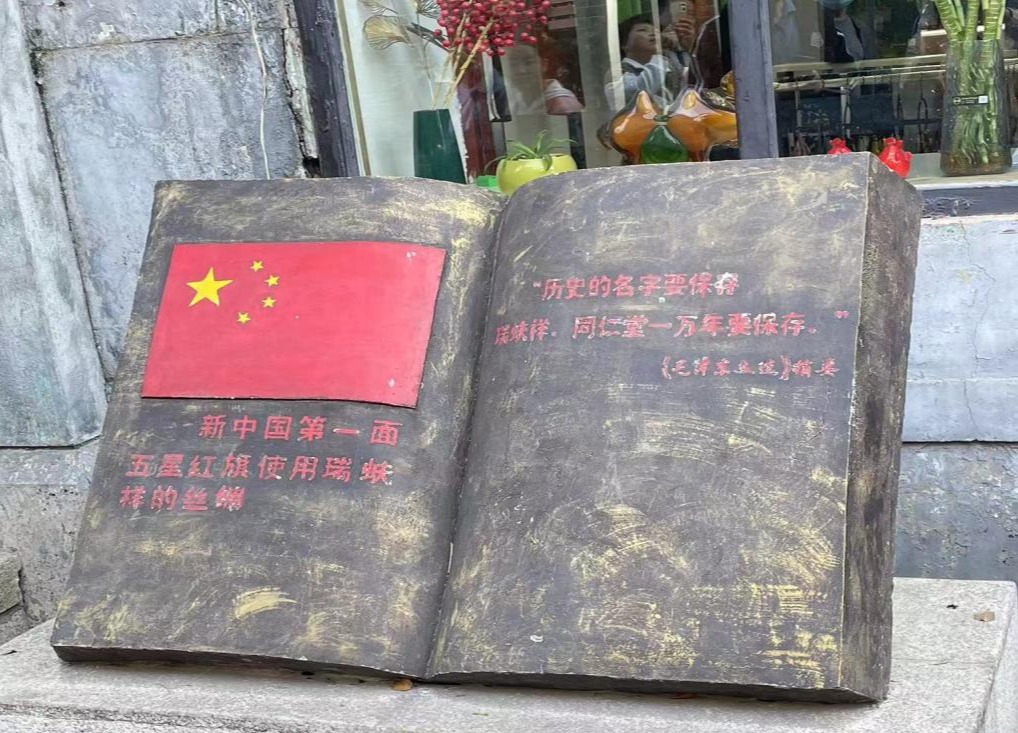 新中国第一面
五星红旗使用瑞蚨
祥的丝绸
“历史的名字要保存
瑞蚨祥。同仁堂一万年要保存。”
《毛泽东文选》摘要